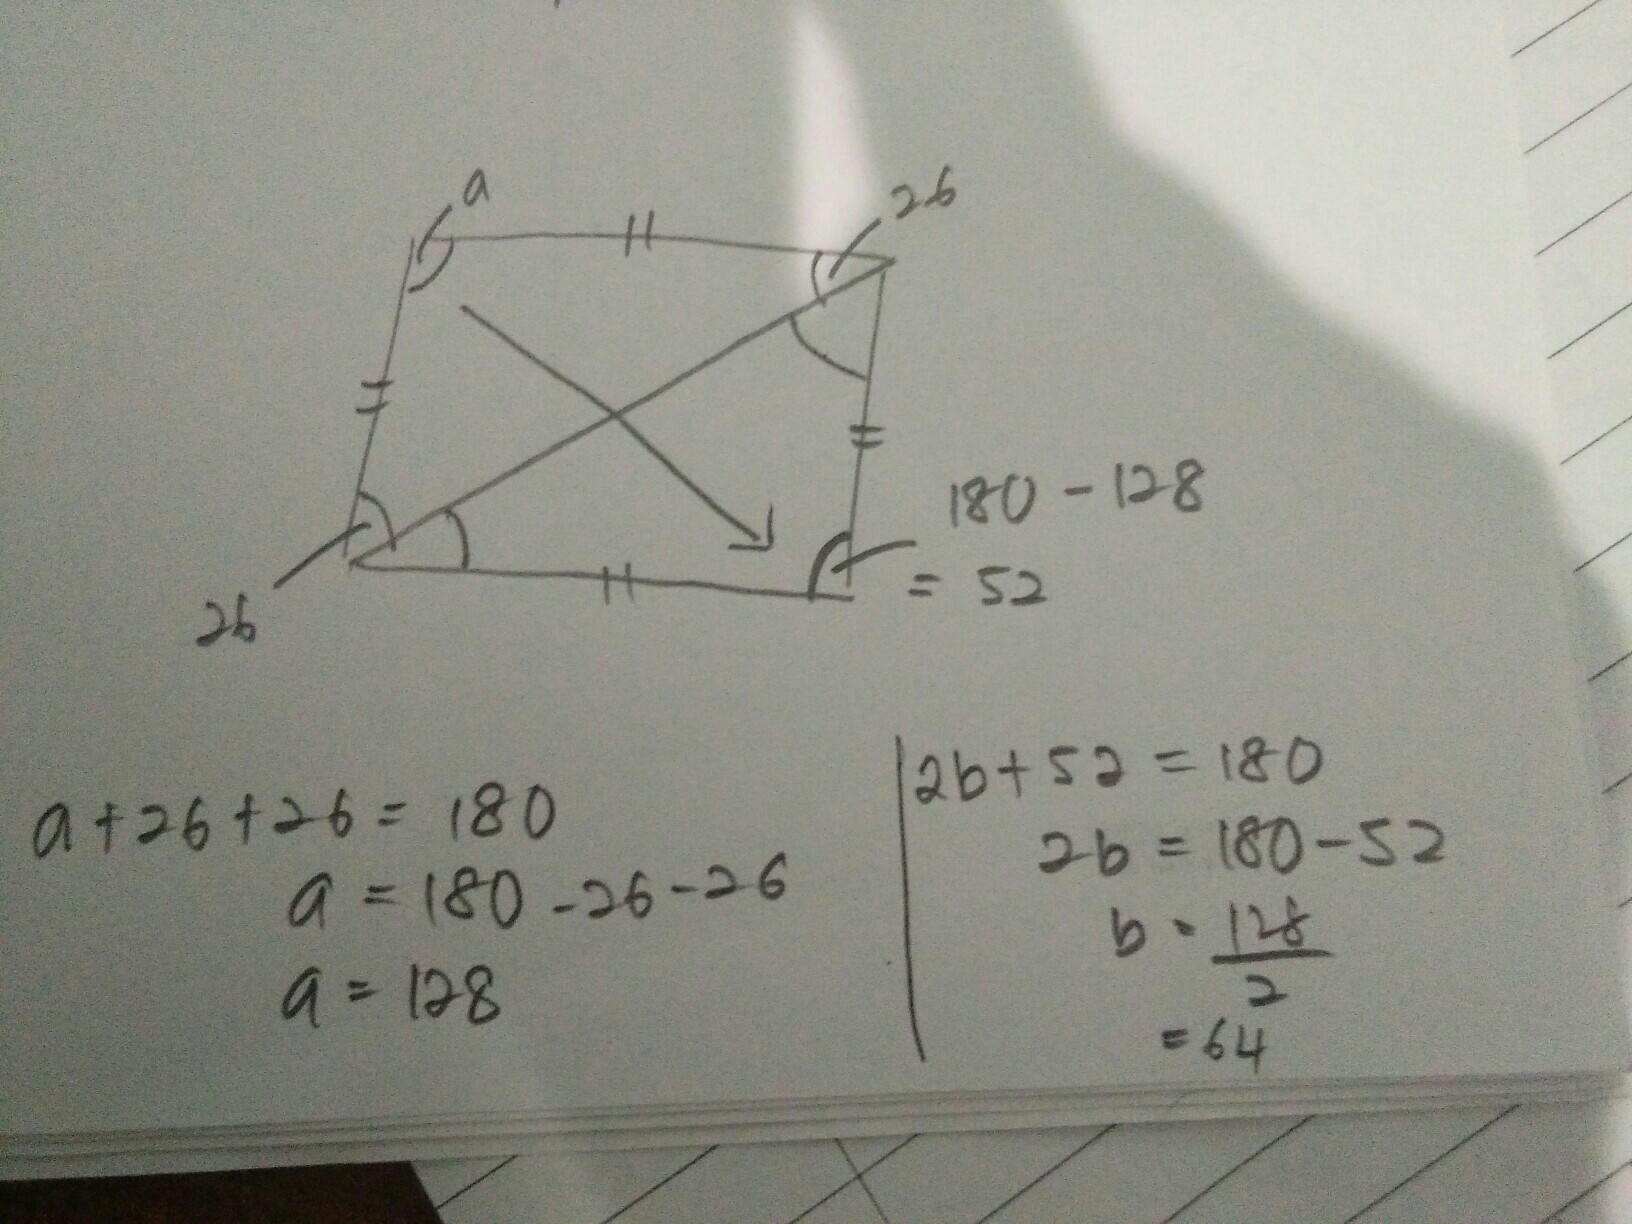 a
26
180 - 128
= 52
26
a + 26 + 26 = 180
a = 180 - 26 - 26
a = 128
2b + 52 = 180
2b = 180 - 52
b = 128
2
= 64